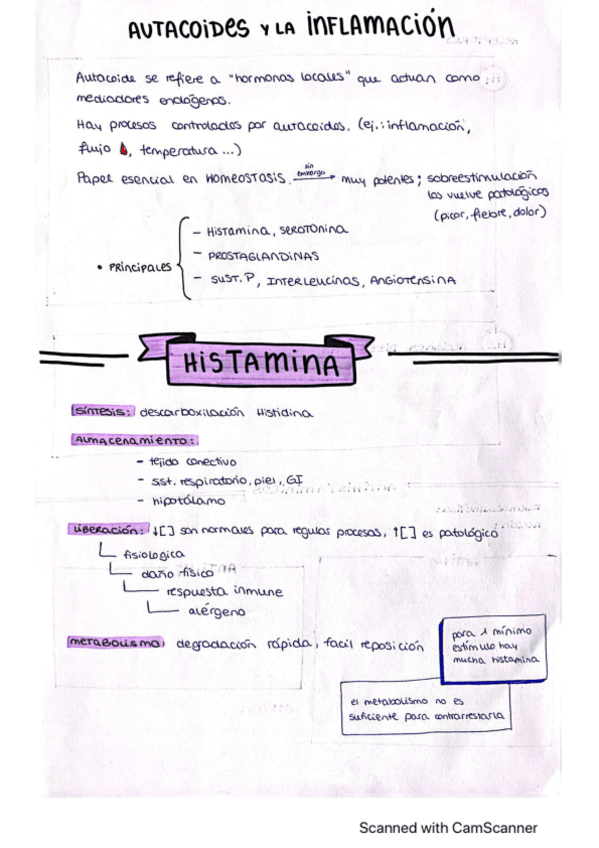 AUTACOIDES Y LA INFLAMACIÓN
Autacoide se refiere a "hormonas locales" que actuan como
mediadores endógenos.
Hay procesos controlados por autacoides. (ej.: inflamación,
flujo 🩸, temperatura ...)
Papel esencial en HOMEOSTASIS. sin embargo → muy potentes; sobreestimulación
los vuelve patológicos
(picor, fiebre, dolor)
• PRINCIPALES
- HISTAMINA, SEROTONINA
- PROSTAGLANDINAS
- SUST. P, INTERLEUCINAS, ANGIOTENSINA
HISTAMINA
SÍNTESIS: descarboxilación Histidina
ALMACENAMIENTO:
- tejido conectivo
- sist. respiratorio, piel, GI
- hipotálamo
LIBERACIÓN: ↓[] son normales para regular procesos, ↑[] es patológico
fisiologica
daño físico
respuesta inmune
alérgeno
METABOLISMO: degradación rápida, facil reposición
para 1 mínimo
estímulo hay
mucha histamina
el metabolismo no es
suficiente para contrarrestarla
Scanned with CamScanner